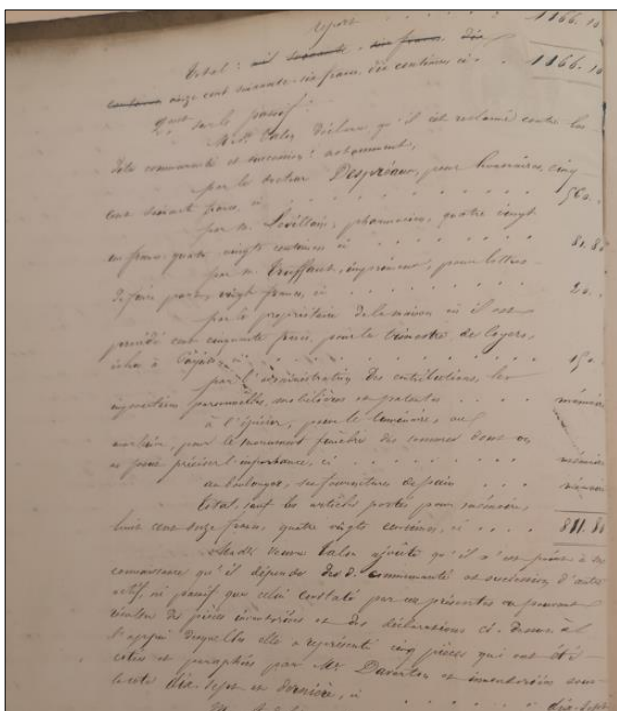 report . . . . . . 1166. 10
Total : mil soixante - six francs, dix
centimes onze cent soixante-six francs, dix centimes ci . . 1166. 10
2ent sur le passif :
Made Calon déclare qu'il est réclamé contre les-
dites communauté et succession : notamment,
par le docteur Despréaux, pour honoraires, cinq
cent soixante francs, ci . . . . . . . . . . 560. .
par M. Levillain, pharmacien, quatre vingt
un francs, quatre vingts centimes ci . . . . . . 81. 80
par M. Truffaut, imprimeur, pour lettres
de faire part, vingt francs, ci . . . . . . . 20. .
par le propriétaire de la maison où il est
décédé cent cinquante francs, pour le trimestre de loyers,
échu à . . . . . . . . . . 150. .
par l'administration des contributions, les
impositions personnelles, mobilières et patentes . . . . mémoire
à l'épicier, pour le luminaire, au
marbrier, pour le monument funèbre des sommes dont on
ne peut préciser l'importance, ci . . . . . . . mémoire
au boulanger, ses fournitures de pain . . . mémoire
Total, sauf les articles portés pour mémoire,
huit cent onze francs, quatre vingts centimes, ci . . . . 811. 80
Madé veuve Calon ajoute qu'il n'est point à sa
connaissance qu'il dépende des d. communauté et succession d'autre
actif, ni passif que celui constaté par ces présentes ou pouvant
résulter des pièces inventoriées et des déclarations ci-dessus à
l'appui desquelles elle a représenté cinq pièces qui ont été
cotées et paraphées par Me. et inventoriées sous
la cote dix-sept et dernière, ci . . . . . . dix-sept